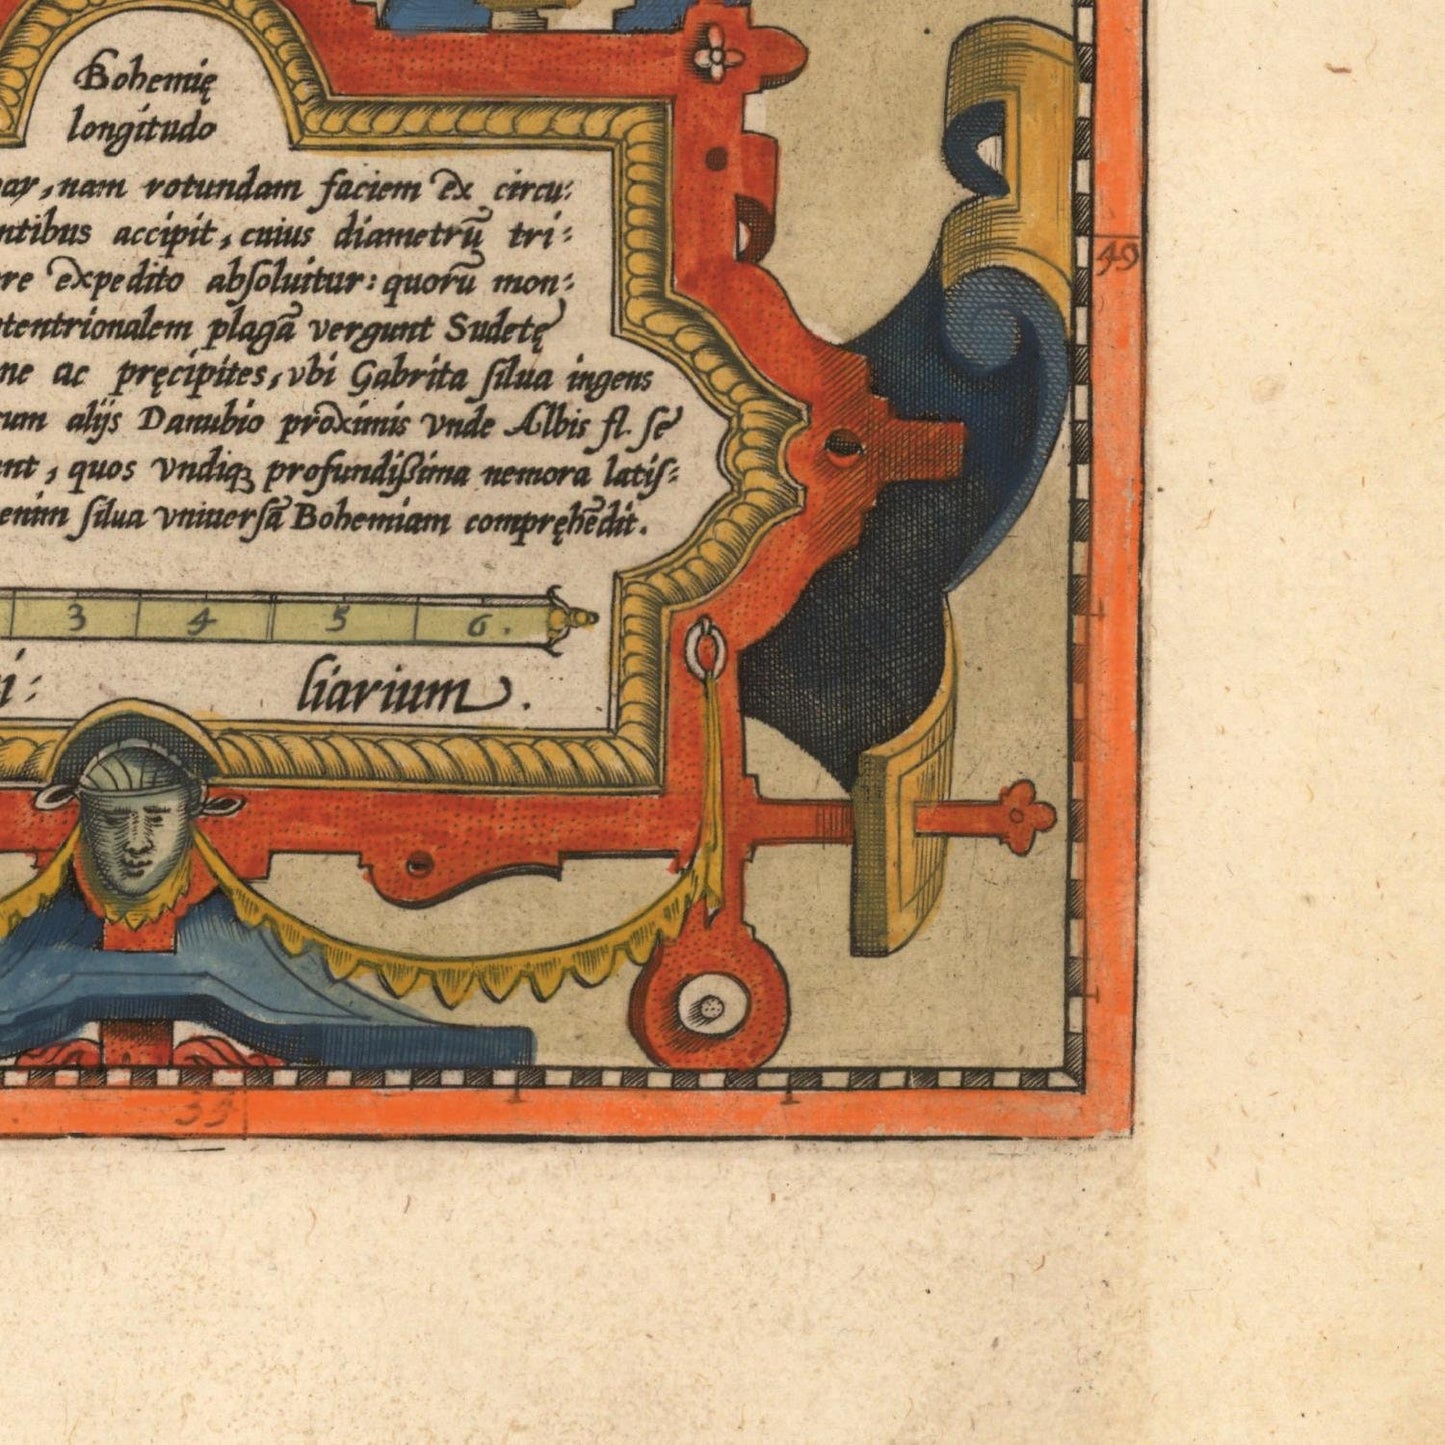 Bohemię
longitudo
par, nam rotundam faciem ex circu:
ntibus accipit, cuius diametrū tri:
re expedito absoluitur: quorū mon:
tentrionalem plagā vergunt Sudetę
ne ac pręcipites, vbi Gabrita silua ingens
cum alijs Danubio proximis vnde Albis fl. se
unt, quos vndiqꝫ profundißima nemora latis:
enim silua vniuersā Bohemiam compręhēdit.
3 4 5 6.
i: liarium.
49
33